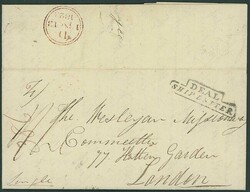 DEAL
SHIP LETTER
The Wesleyan Missionary
Committee
77 Hatton Garden
London
Single